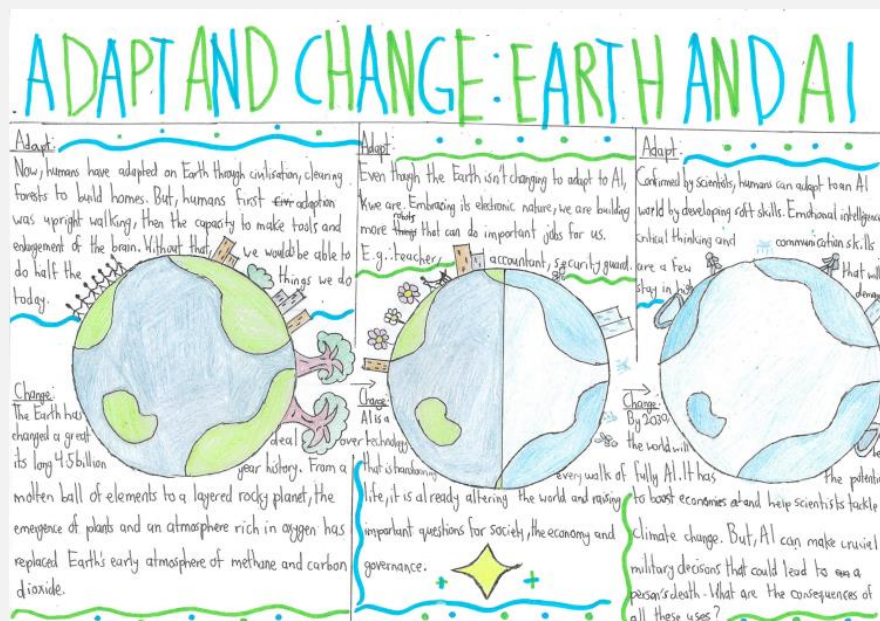 ADAPT AND CHANGE: EARTH AND AI
Adapt:
Now, humans have adapted on Earth through civilisation, clearing
forests to build homes. But, humans first adaption
was upright walking, then the capacity to make tools and
enlargement of the brain. Without that, we would be able to
do half the things we do
today.
Change:
The Earth has
changed a great deal over
its long 4.5 billion year history. From a
molten ball of elements to a layered rocky planet, the
emergence of plants and an atmosphere rich in oxygen has
replaced Earth's early atmosphere of methane and carbon
dioxide.
Adapt:
Even though the Earth isn't changing to adapt to AI,
we are. Embracing its electronic nature, we are building
more robots that can do important jobs for us.
E.g: teacher, accountant, security guard.
Change:
AI is a
technology
that is every walk of
life, it is already altering the world and raising
important questions for society, the economy and
governance.
Adapt:
Confirmed by scientists, humans can adapt to an AI
world by developing soft skills. Emotional intelligence
critical thinking and communication skills
are a few that will
stay in high
Change:
By 2030,
the world will be
fully AI. It has the potential
to boost economies and help scientists tackle
climate change. But, AI can make crucial
military decisions that could lead to a
person's death. What are the consequences of
all these uses?